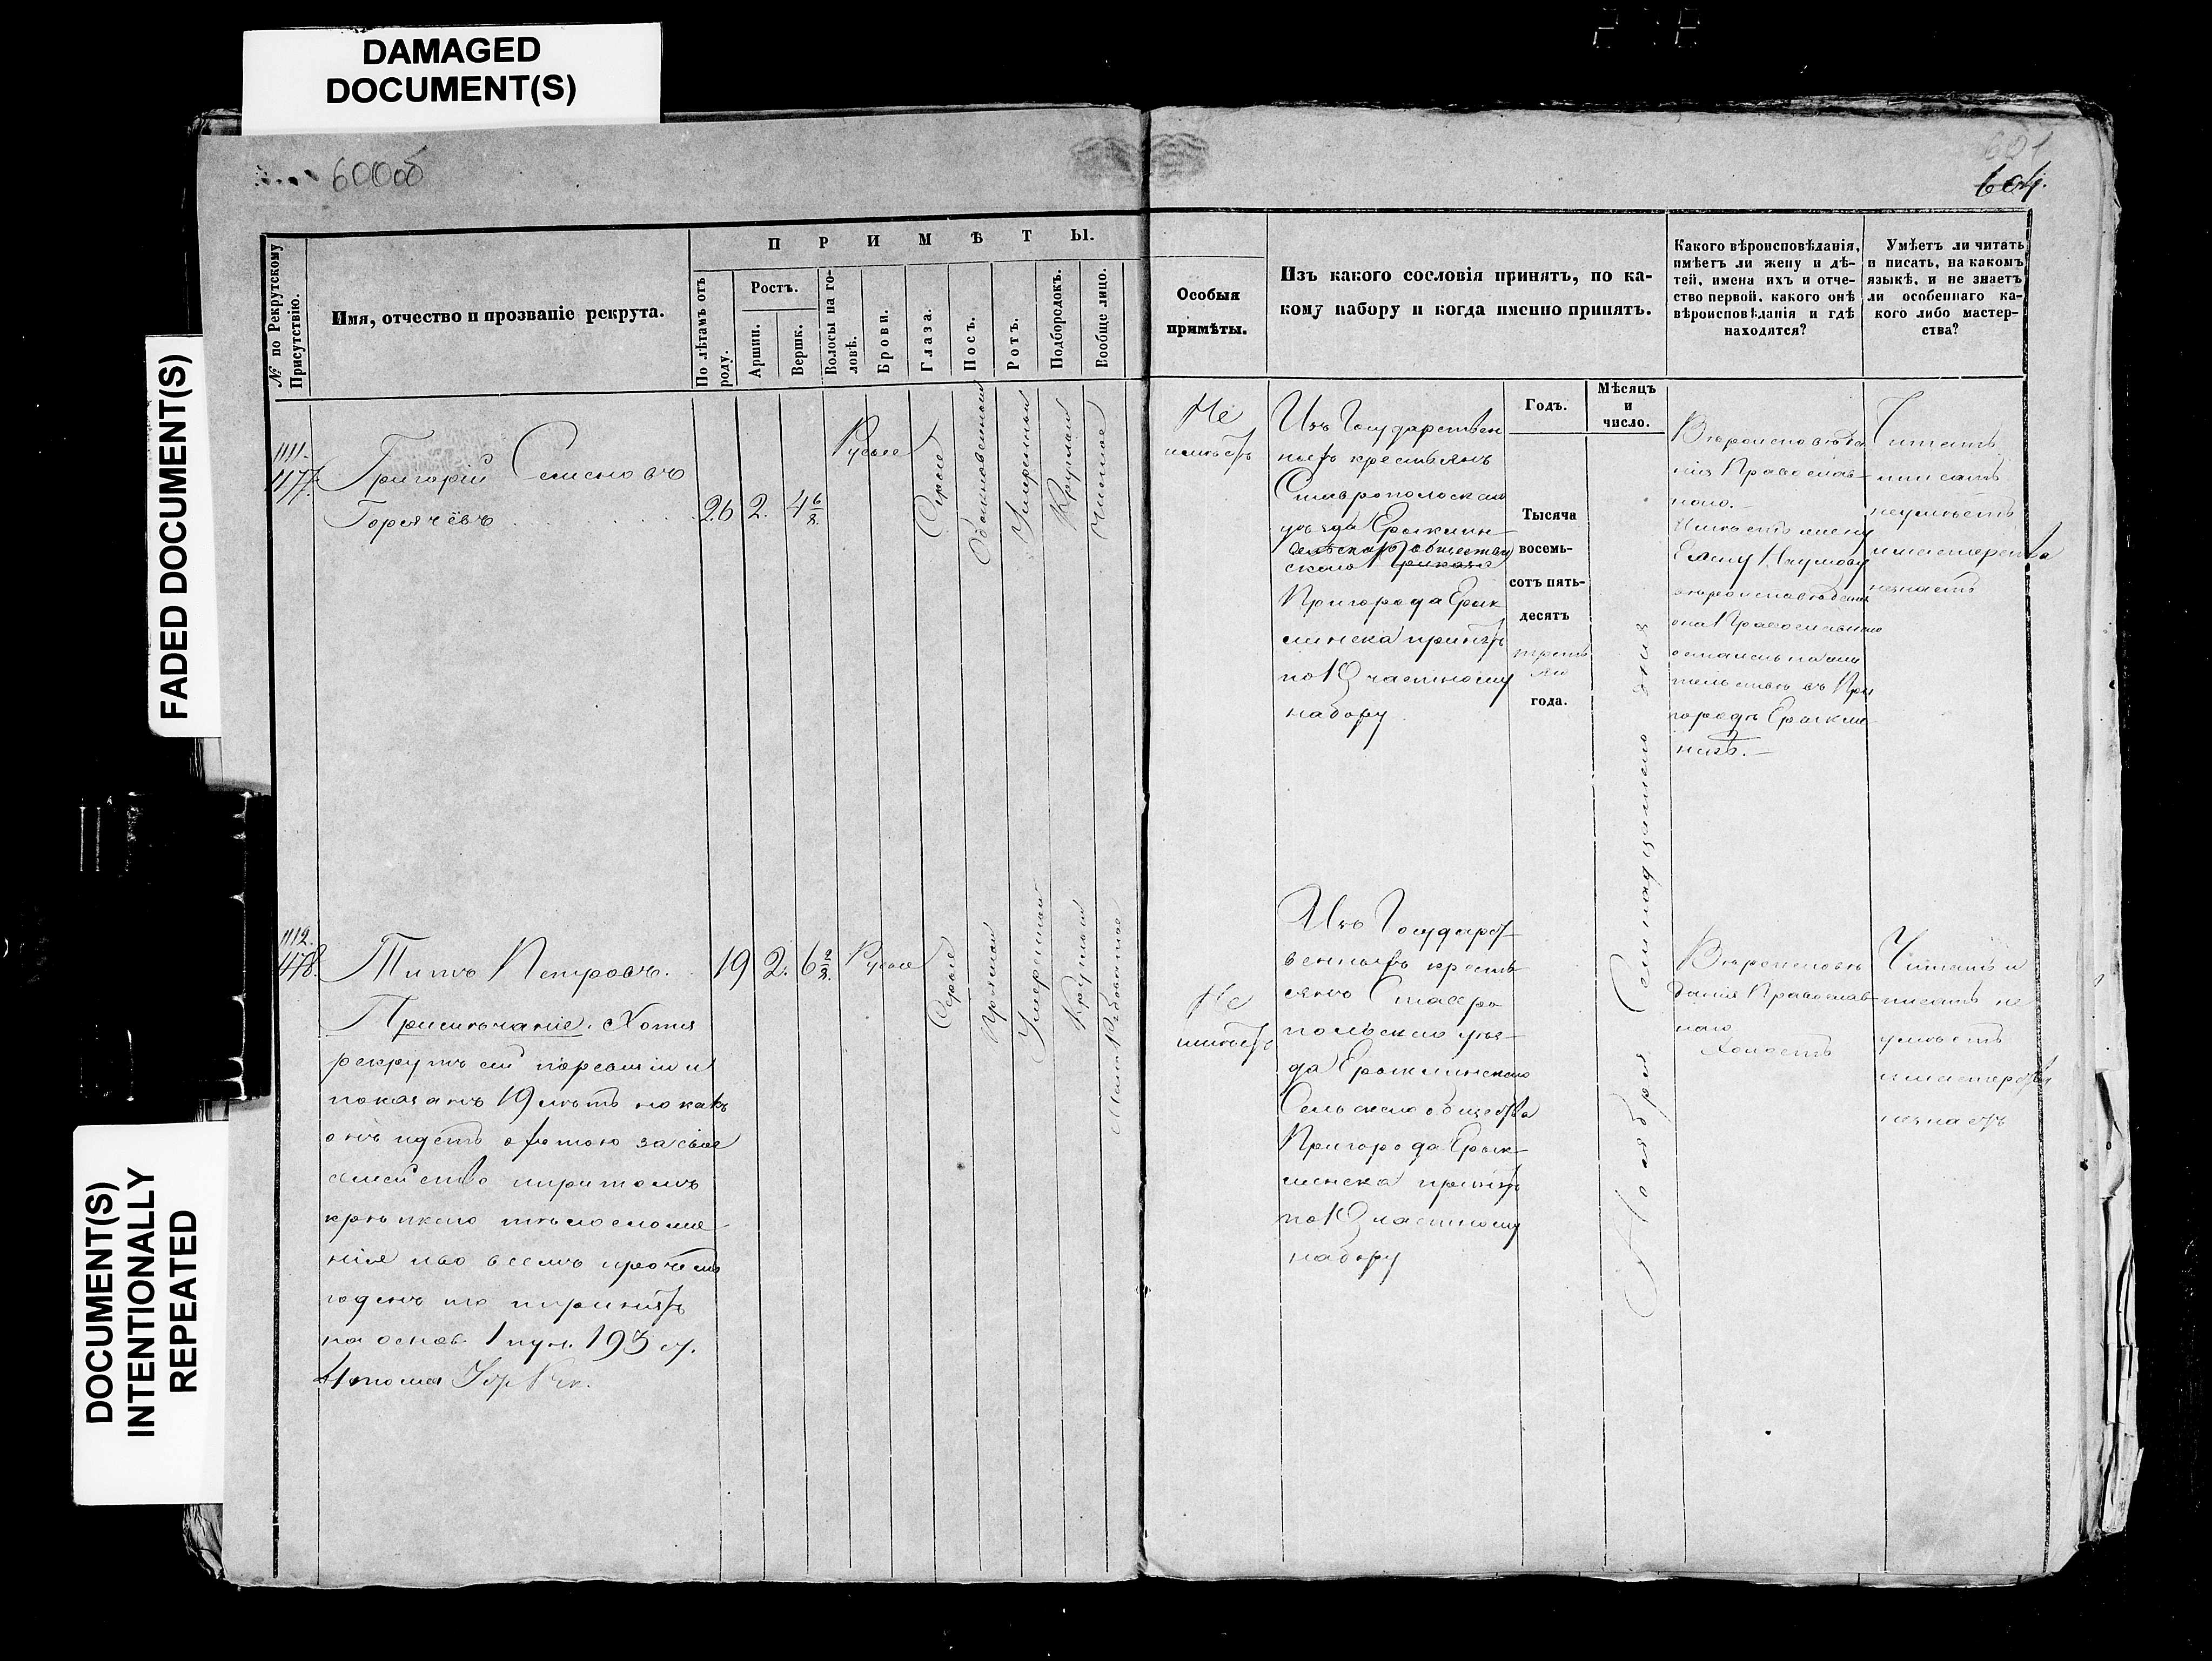 DAMAGED
DOCUMENT(S)
FADED DOCUMENT(S)
DOCUMENT(S)
INTENTIONALLY
REPEATED
600об
601
№ по Рекрутскому
Присутствію.
Имя, отчество и прозваніе рекрута.
ПРИМѢТЫ.
По лѣтамъ отъ
роду.
Ростъ.
Аршин.
Вершк.
Волосы на го-
ловѣ.
Брови.
Глаза.
Носъ.
Ротъ.
Подбородокъ.
Вообще лицо.
Особыя
примѣты.
Изъ какого сословія принятъ, по ка-
кому набору и когда именно принятъ.
Годъ.
Мѣсяцъ
и
число.
Какого вѣроисповѣданія,
имѣетъ ли жену и дѣ-
тей, имена ихъ и отче-
ство первой, какого онѣ
вѣроисповѣданія и гдѣ
находятся?
Умѣетъ ли читать
и писать, на какомъ
языкѣ, и не знаетъ
ли особеннаго ка-
кого либо мастер-
ства?
1111.
1177.
Григорій Семеновъ
Горячёвъ
26
2.
4 6/8.
Русые
Серые
Обыкновенный
Умеренный
Круглый
Чистое
Не
имѣетъ
Изъ Государствен
ныхъ крестьянъ
Ставропольскаго
уѣзда Ерыклин-
скаго Приказа
Пригорода Ерык
линска принятъ
по 10 частному
набору
Тысяча
восемь-
сотъ пять-
десятъ
третья
го
года.
Ноября Семнадцатаго дня
Вѣроисповѣда
нія Православ-
наго.
Имѣетъ жену
Елену Наумову
вѣроисповѣданія
она Православнаго
осталась на жи
тельствѣ въ При
городѣ Ерыкли
нскѣ.
Читать
писать
неумѣетъ
и мастерства
незнаетъ
1112.
1178.
Титъ Петровъ.
19
2.
6 2/8.
Русые
Серые
Прямой
Умеренный
Круглый
Мало Рябоватое
Примѣчаніе. Хотя
рекрутъ сей по ревизіи и
показанъ 19 лѣтъ но какъ
онъ идетъ охотою за свое
семейство и притомъ
крѣпкаго тѣлосложе-
нія и во всемъ прочемъ
годенъ то и принятъ
на основ. 1 пун. 193 ст.
4 тома Уст. Рек.
Не
имѣетъ
Изъ Государст
венныхъ кресть
янъ Ставро
польскаго уѣз-
да Ерыклинскаго
Сельскаго общества
Пригорода Ерык-
линска принятъ
по 10 частному
набору
Вѣроисповѣ
данія Православ-
наго
Холостъ
Читать и
писать не
умѣетъ
и мастерства
незнаетъ